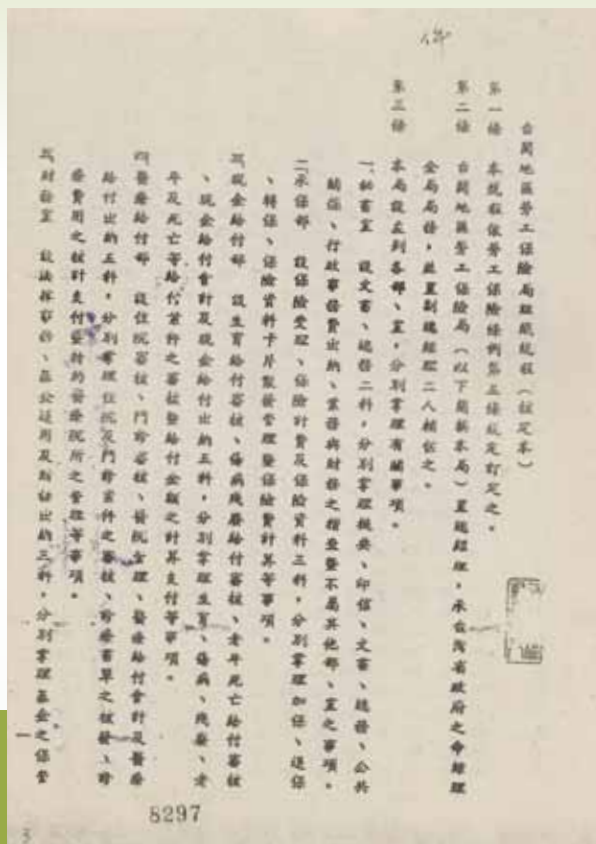 台閩地區勞工保險局組織規程（核定本）
第一條　本規程依勞工保險條例第五條規定訂定之。
第二條　台閩地區勞工保險局（以下簡稱本局）置總經理，承台灣省政府之命綜理
全局局務，並置副總經理二人輔佐之。
第三條　本局設左列各部、室，分別掌理有關事項。
一、秘書室　設文書、總務二科，分別掌理機要、印信、文書、總務、公共
關係、行政事務費出納、業務與財務之稽查暨不屬其他部、室之事項。
二、承保部　設保險受理、保險計費及保險資料三科，分別掌理加保、退保
、轉保、保險資料卡片製發管理暨保險費計算等事項。
三、現金給付部　設生育給付審核、傷病殘廢給付審核、老年死亡給付審核
、現金給付會計及現金給付出納五科，分別掌理生育、傷病、殘廢、老
年及死亡等給付案件之審核暨給付金額之計算支付等事項。
四、醫療給付部　設住院審核、門診審核、醫院管理、醫療給付會計及醫療
給付出納五科，分別掌理住院及門診案件之審核、診療書單之核發、診
療費用之核計支付暨特約醫療院所之管理等事項。
五、財務室　設法律事務、基金運用及財務出納三科，分別掌理基金之保管
一
8297